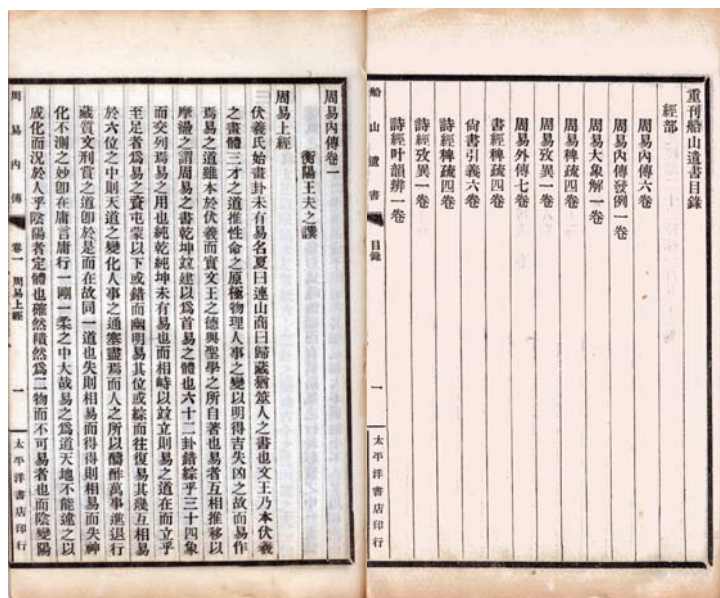 重刊船山遺書目錄
經部
周易內傳六卷
周易內傳發例一卷
周易大象解一卷
周易稗疏四卷
周易攷異一卷
周易外傳七卷
書經稗疏四卷
尙書引義六卷
詩經稗疏四卷
詩經攷異一卷
詩經叶韻辨一卷
船山遺書
目錄
一
太平洋書店印行
周易內傳卷一
衡陽王夫之譔
周易上經
伏羲氏始畫卦未有易名夏曰連山商曰歸藏猶筮人之書也文王乃本伏羲
之畫體三才之道推性命之原極物理人事之變以明得吉失凶之故而易作
焉易之道雖本於伏羲而實文王之德與聖學之所自著也易者互相推移以
摩盪之謂周易之書乾坤竝建以爲首易之體也六十二卦錯綜乎三十四象
而交列焉易之用也純乾純坤未有易也而相峙以竝立則易之道在而立乎
至足者爲易之資屯蒙以下或錯而幽明易其位或綜而往復易其幾互相易
於六位之中則天道之變化人事之通塞盡焉而人之所以酬酢萬事進退行
藏質文刑賞之道卽於是而在故同一道也失則相易而得得則相易而失神
化不測之妙卽在庸言庸行一剛一柔之中大哉易之爲道天地不能違之以
成化而況於人乎陰陽者定體也確然隤然爲二物而不可易者也而陰變陽
周易內傳
卷一 周易上經
一
太平洋書店印行